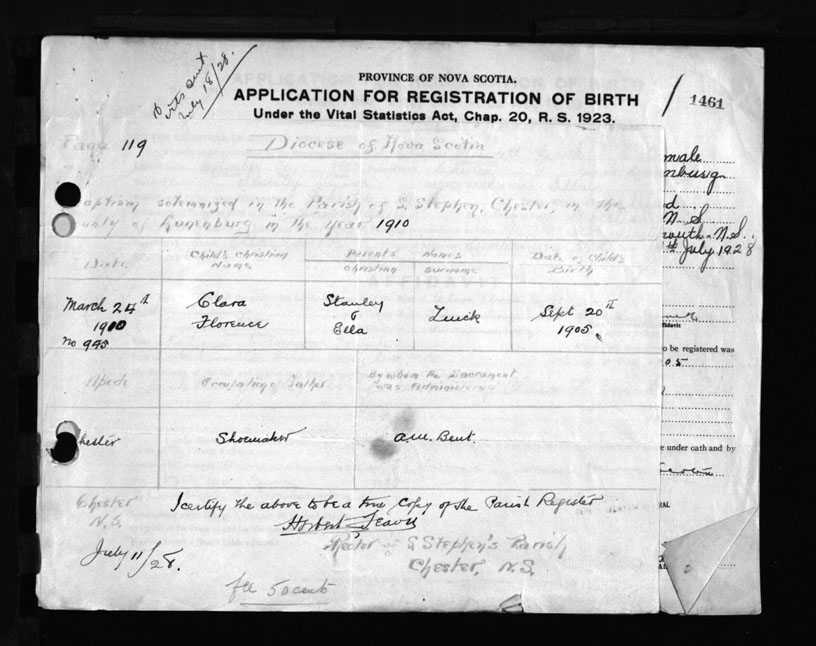 Certs sent
July 18/28.
PROVINCE OF NOVA SCOTIA.
APPLICATION FOR REGISTRATION OF BIRTH
Under the Vital Statistics Act, Chap. 20, R. S. 1923.
1461
Page 119
Diocese of Nova Scotia
aptism solemnized in the Parish of S. Stephen, Chester, in the
unty of Lunenburg in the Year 1910
Date
Child's Christian Name
Parents Names
Christian
Surname
Date of Child's Birth
March 24th
1910
No 995
Clara
Florence
Stanley
&
Ella
Zwick
Sept 20th
1905.
Abode
Occupation of Father
By whom the Sacrament
was Administered
hester
Shoemaker
A.M. Bent.
Chester
N.S.
I certify the above to be a true Copy of the Parish Register
Rector of S. Stephen's Parish
Chester, N.S.
July 11/28.
fee 50 cents
male
nburg
d
N.S
mouth N.S.
th July 1928
ffidavit
to be registered was
05
e under oath and by
IAL